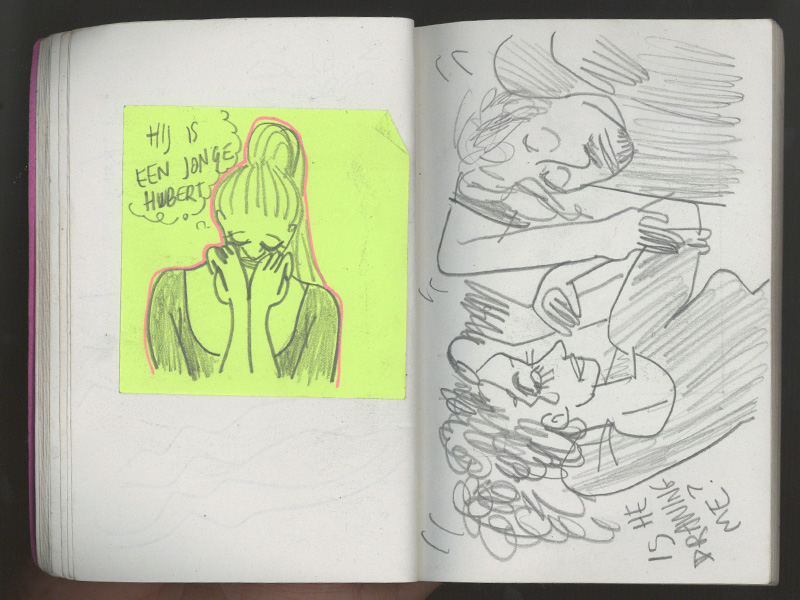 HIJ IS
EEN JONGE
HUBERT
IS HE
DRAWING
ME?